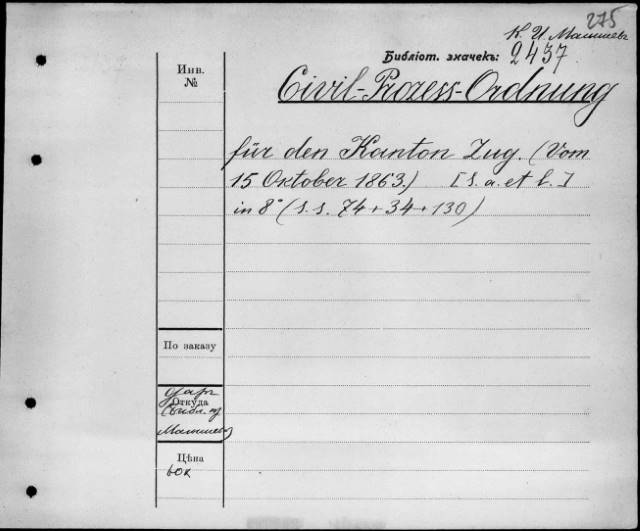 275
К. И. Малышев
Библіот. значекъ: 2437
Инв.
№
Civil-Prozess-Ordnung
für den Kanton Zug. (Vom
15 Oktober 1863.) [s. a. et l.]
in 8° (s. s. 74 + 34 + 130)
По заказу
даръ
Откуда
Малышев
Цѣна
60к